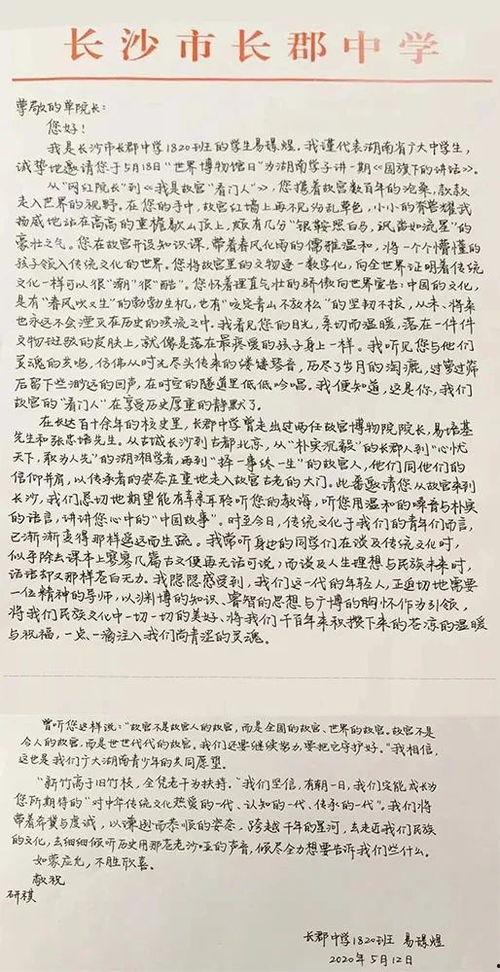 长沙市长郡中学
尊敬的单院长：
您好！
我是长沙市长郡中学1820班的学生易谋煜。我谨代表湖南省广大中学生，
诚挚地邀请您于5月18日“世界博物馆日”为湖南学子讲一期《国旗下的讲话》。
从“网红院长”到《我是故宫“看门人”》，您携着故宫数百年的沧桑，款款
走入世界的视野。在您的手中，故宫红墙上再不见幼乱草色，小小的脊兽耀武
扬威地站在高高的重檐歇山顶上，颇有几分“银鞍照白马，飒沓如流星”的
豪壮之气。您在故宫开设知识课，带着春风化雨的儒雅温和，将一个个懵懂的
孩子领入传统文化的世界。您将故宫里的文物逐一数字化，向全世界证明着传统
文化一样可以很“潮”很“酷”。您怀着理直气壮的骄傲向世界宣告：中国的文化，
是有“春风吹又生”的勃勃生机，也有“咬定青山不放松”的坚韧不拔，从未、将来
也永远不会湮灭在历史的溪流之中。我看见您的目光，亲切而温暖，落在一件件
文物斑驳的皮肤上，就像是落在最疼爱的孩子身上一样。我听见您与他们
灵魂的共鸣，仿佛从时光尽头传来的缕缕琴音，历尽岁月的淘漉，过滤过筛
后留下些渺远的回声，在时空的隧道里低低吟唱。我便知道，这是你，我们
故宫的“看门人”在享受历史厚重的静默了。
在长达百十余年的校史里，长郡中学曾走出过两任故宫博物院院长，易培基
先生和张忠培先生。从古城长沙到古都北京，从“朴实沉毅”的长郡人到“心忧
天下，敢为人先”的湖湘学者，再到“择一事终一生”的故宫人，他们同他们的
信仰并肩，以传承者的姿态庄重地走入故宫古老的大门。此番邀请您从故宫来到
长沙，我们恳切地期望能有幸亲耳聆听您的教诲，听您用温和的嗓音与朴实
的语言，讲讲您心中的“中国故事”。时至今日，传统文化于我们的青年们而言，
已渐渐变得那样遥远而生疏。我常听身边的同学们在谈及传统文化时，
似乎除去课本上寥寥几篇古文便再无话可说，而谈及人生理想与民族未来时，
话语却又那样苍白无力。我隐隐感受到，我们这一代的年轻人，正迫切地需要
一位精神的导师，以渊博的知识、睿智的思想与广博的胸怀作为引领，
将我们民族文化中一切一切的美好、将我们千百年来积攒下来的苍凉的温暖
与祝福，一点一滴注入我们尚青涩的灵魂。
曾听您这样说：“故宫不是故宫人的故宫，而是全国的故宫、世界的故宫。故宫不是
今人的故宫，而是世世代代的故宫。我们还要继续努力，要把它守护好。”我相信，
这也是我们广大湖南青少年的共同愿望。
“新竹高于旧竹枝，全凭老干为扶持。”我们坚信，有朝一日，我们定能成长为
您所期待的“对中华传统文化热爱的一代、认知的一代、传承的一代”。我们将
带着希冀与虔诚，以谦逊而恭顺的姿态，跨越千年的星河，去走近我们民族
的文化，去细细倾听历史用那苍老沙哑的声音，倾尽全力想要告诉我们些什么。
如蒙应允，不胜欣喜。
敬祝
研祺
长郡中学1820班 易谋煜
2020年5月12日